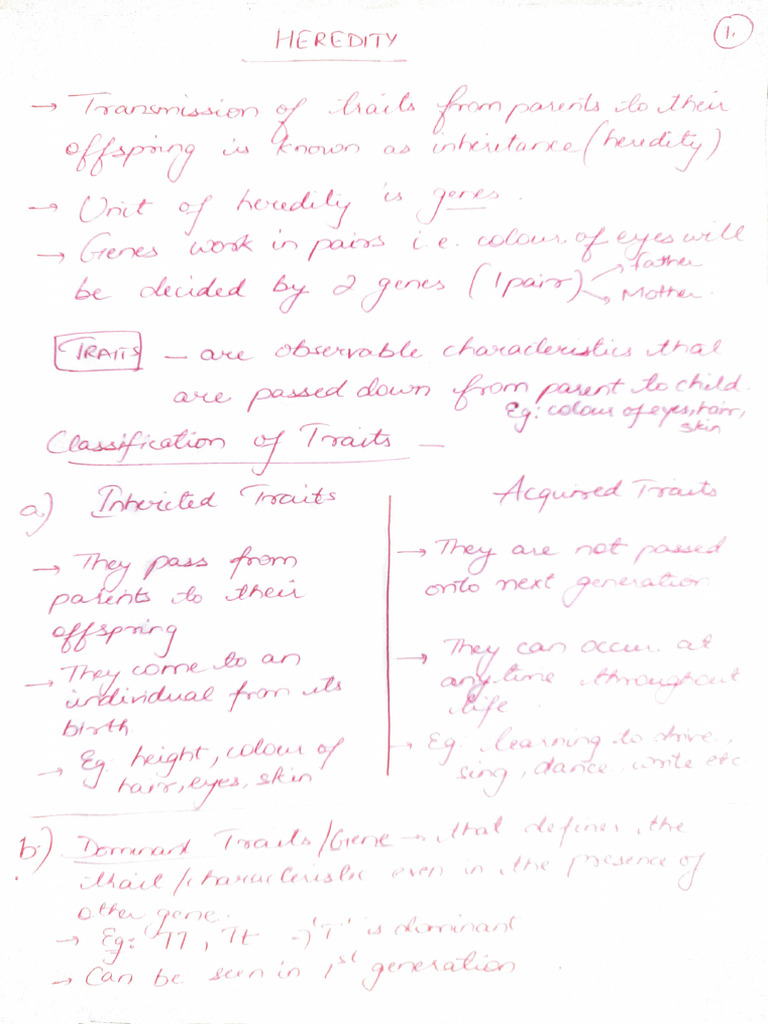 HEREDITY
1.
→ Transmission of traits from parents to their
offspring is known as inheritance (heredity)
→ Unit of heredity is genes.
→ Genes work in pairs i.e. colour of eyes will
be decided by 2 genes (1 pair) → Father
→ Mother.
TRAITS - are observable characteristics that
are passed down from parent to child.
Eg: colour of eyes, hair,
skin
Classification of Traits -
a) Inherited Traits
→ They pass from
parents to their
offspring
→ They come to an
individual from its
birth
→ Eg. height, colour of
hair, eyes, skin
Acquired Traits
→ They are not passed
onto next generation
→ They can occur at
anytime throughout
life.
→ Eg. learning to drive,
sing, dance, write etc
b.) Dominant Traits/Gene → that defines the
trait/characteristic even in the presence of
other gene.
→ Eg: TT, Tt → 'T' is dominant
→ Can be seen in 1st generation.